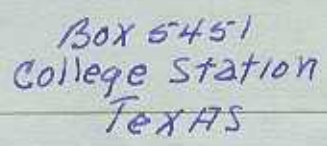 Box 5451
College Station
Texas